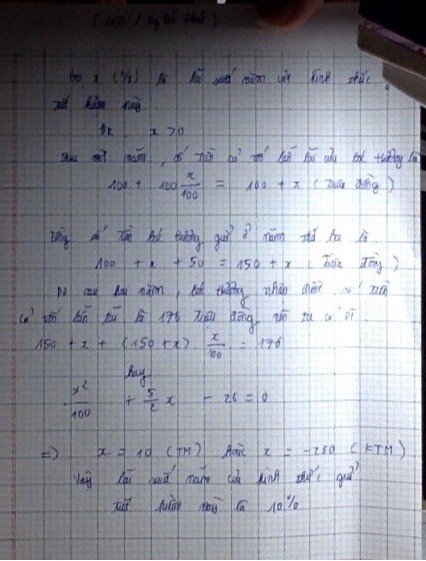 Gọi x (%) là lãi suất năm của hình thức
tiết kiệm này.
Đk x > 0
Sau một năm, số tiền cả vốn lẫn lãi của bác tường là
100 + 100 x/100 = 100 + x (triệu đồng)
Tổng số tiền bác tường gửi ở năm thứ hai là
100 + x + 50 = 150 + x (triệu đồng)
Do sau hai năm, bác tường nhận được số tiền
cả vốn lẫn lãi là 176 triệu đồng nên ta có pt.
150 + x + (150 + x) x/100 = 176
hay
x²/100 + 5/2 x - 26 = 0
=> x = 10 (TM) hoặc x = -260 (KTM)
Vậy lãi suất năm của hình thức gửi
tiết kiệm này là 10%